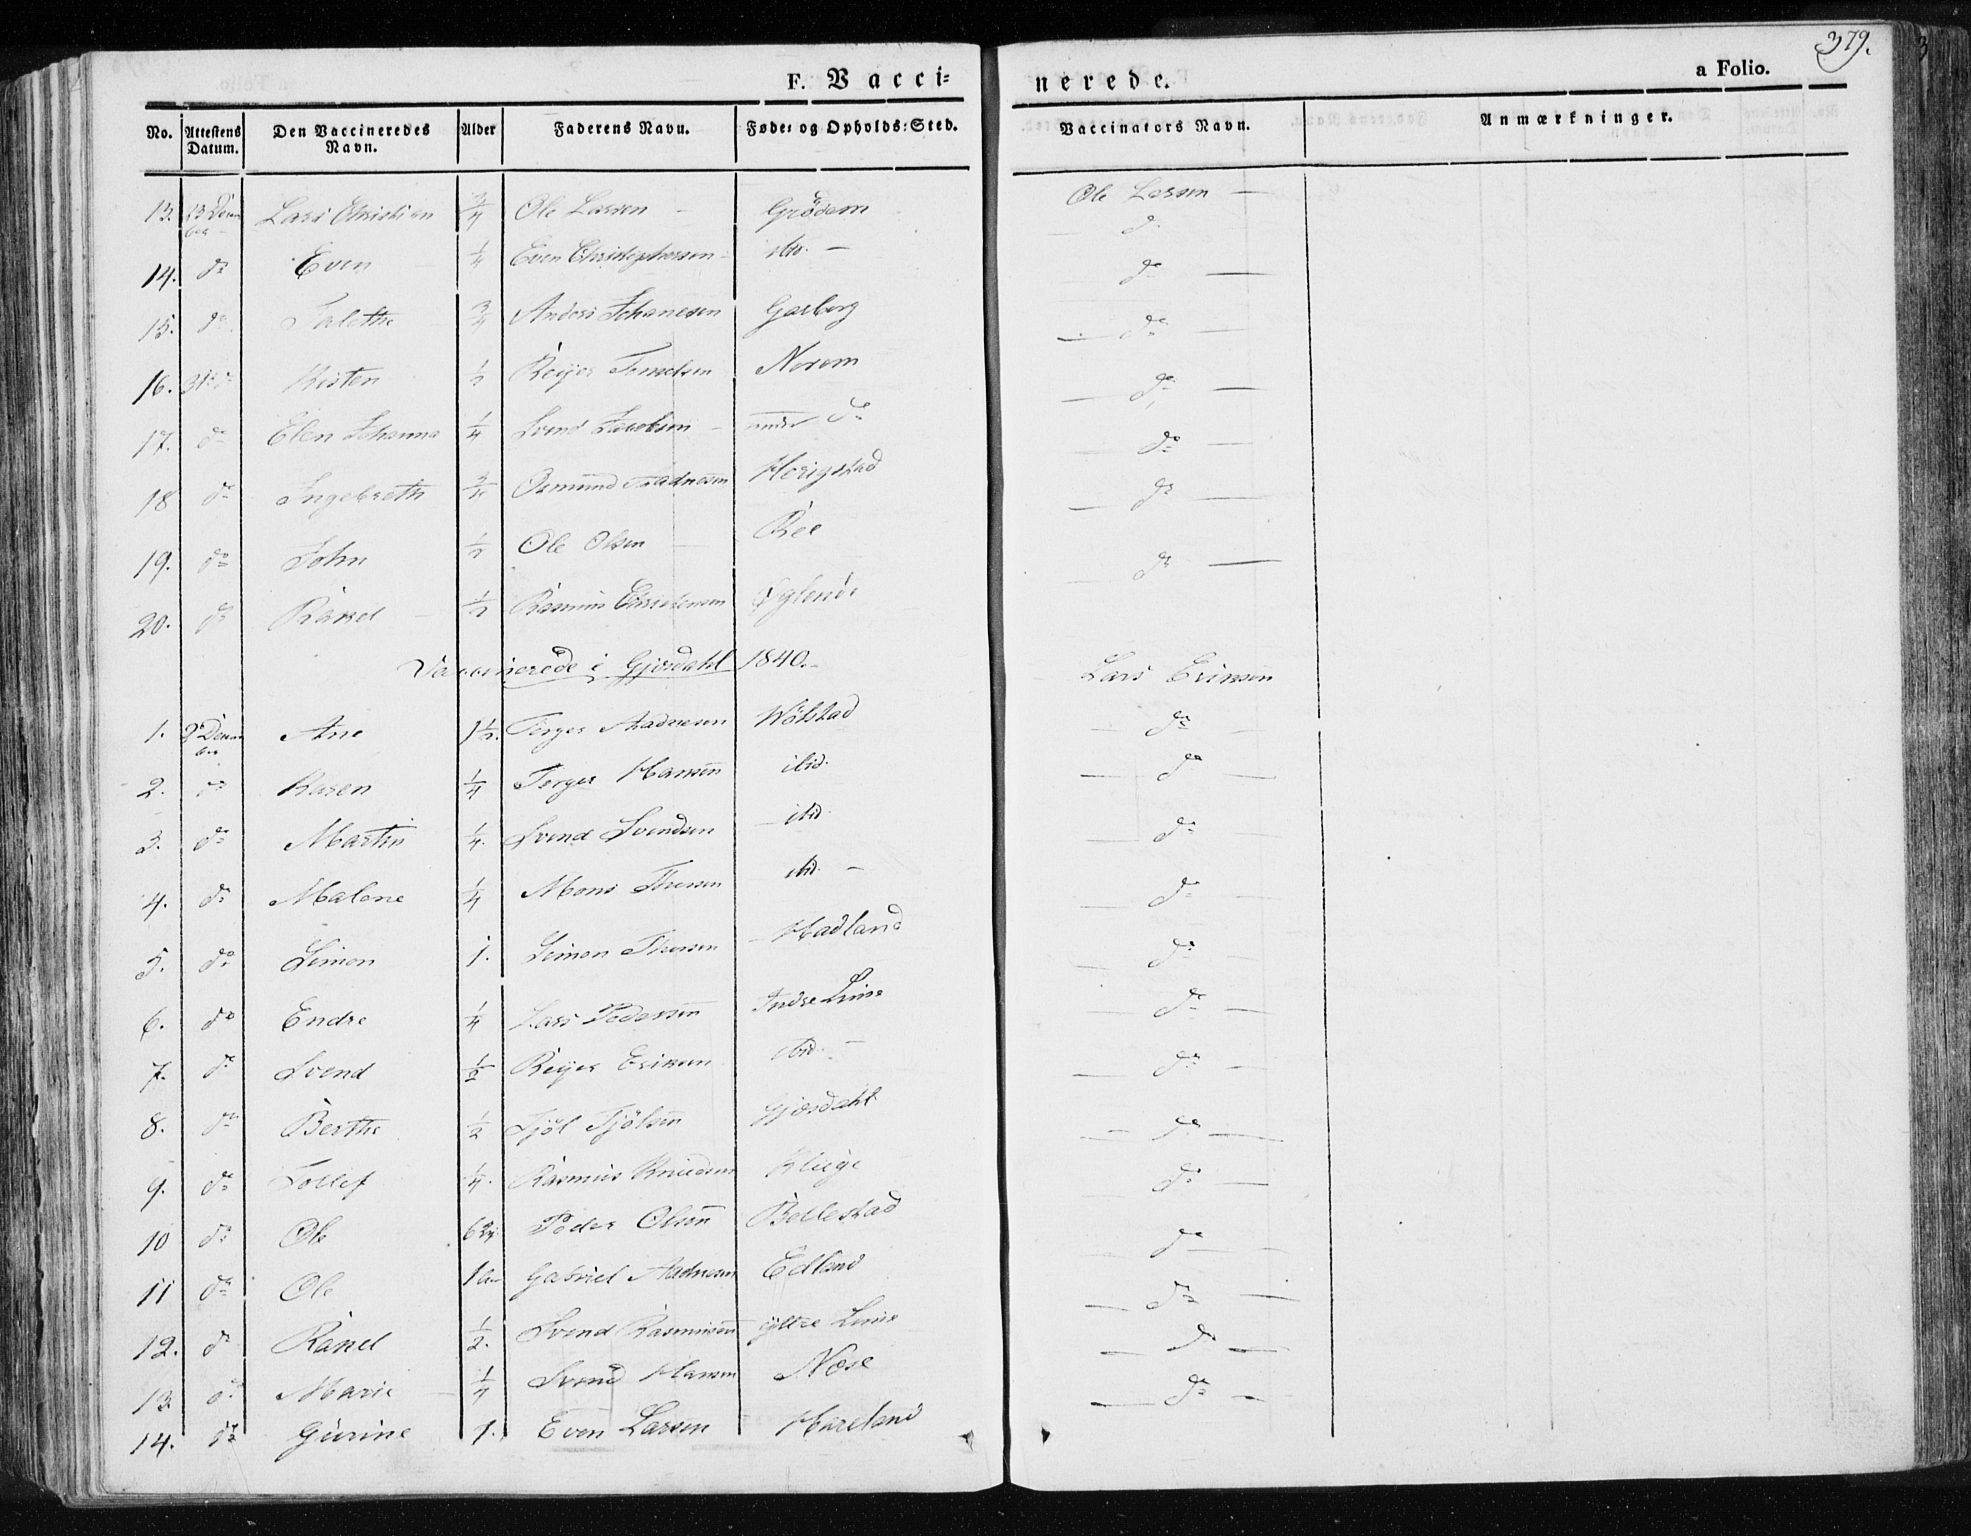 379.
F. Vacci=
nerede.
a Folio.
No. | Attestens Datum. | Den Vaccineredes Navn. | Alder | Faderens Navn. | Føde= og Opholds=Sted. | Vaccinators Navn. | Anmærkninger.
13. | 13 Decem ber | Lars Christian | 3/4 | Ole Larsen – | Grödem | Ole Larsen –
14. | do | Even | 1/4 | Even Christophersen | ibid. – | do
15. | do | Talethe | 3/4 | Anders Johanesen | Garborg | do –
16. | 31 do | Kisten | 1/2 | Reijer Tonnesen | Norem | do –
17. | do | Elen Johanna | 1/4 | Svend Jacobsen – | under do | do –
18 | do | Ingebreth | 3/4 | Osmund Aadnesen | Hörigstad | do –
19. | do | John | 1/2 | Ole Olsen – | Ree | do –
20. | do | Ranel – | 1/2 | Rasmus Christensen | Øglend | do –
Vaccinerede i Gjesdahl 1840.
1. | 2 Decem ber | Ane | 1 1/2. | Terges Aadnesen | Wölstad | Lars Eriksen
2. | do | Karen | 1/4 | Terges Hansen | ibid. | do –
3. | do | Martin | 1/4. | Svend Svendsen | ibid. | do –
4. | do | Malene | 1/4 | Mons Thorsen | ibid. – | do –
5. | do | Simon | 1. | Simon Thorsen | Madland | do –
6. | do | Endre | 1/4 | Lars Pedersen | Indre Lime | do –
7. | do | Svend | 1/2 | Reijer Eriksen | ibid. – | do –
8. | do | Berthe | 1/2 | Tjöl Tjölsen | Gjesdahl | do –
9. | do | Tollef | 1/4. | Rasmus Knudsen | Kluge | do –
10 | do | Ole | Peder Olsen | Bollestad | do –
11 | do | Ole | Gabriel Aadnesen | Edland | do –
12. | do | Ranel | 1/2. | Svend Rasmusen | ÿttre Lime | do –
13. | do | Marie – | 1/4 | Svend Hansen | Næse | do –
14. | do | Gurine | 1. | Even Larsen | Mareland | do –